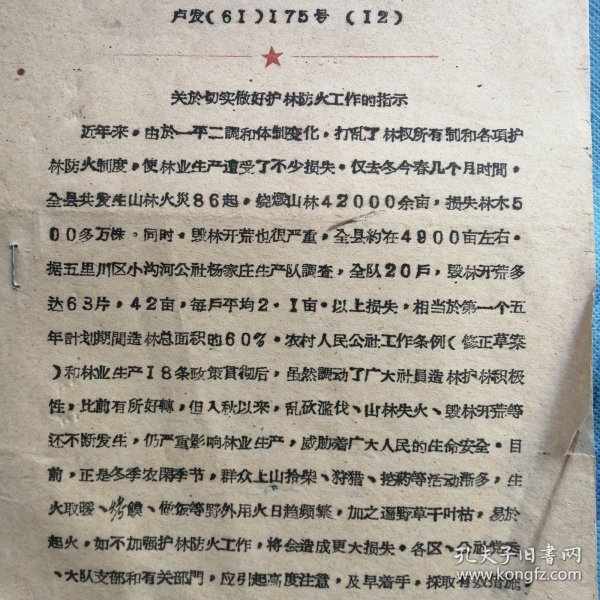 卢发(61)175号 (12)
关於切实做好护林防火工作的指示
近年来，由於一平二調和体制变化，打乱了林权所有制和各項护
林防火制度，使林业生产遭受了不少損失。仅去冬今春几个月时間，
全县共发生山林火災86起，燒燬山林42000余亩，損失林木5
00多万株。同时，毁林开荒也很严重，全县約在4900亩左右。
据五里川区小沟河公社杨家庄生产队調査，全队20戶，毁林开荒多
达63片，42亩，每戶平均2.1亩。以上損失，相当於第一个五
年計划期間造林总面积的60%。农村人民公社工作条例(修正草案
)和林业生产18条政策貫彻后，虽然調动了广大社員造林护林积极
性，比前有所好轉，但入秋以来，乱砍滥伐、山林失火、毁林开荒等
还不断发生，仍严重影响林业生产，威胁着广大人民的生命安全。目
前，正是冬季农閑季节，群众上山拾柴、狩猎、挖葯等活动漸多，生
火取暖、烤饃、做饭等野外用火日趋频繁，加之遍野草干叶枯，易於
起火，如不加强护林防火工作，将会造成更大損失。各区、公社党委
、大队支部和有关部門，应引起高度注意，及早着手，採取有效措施，
孔夫子旧书网
www.kongfz.com